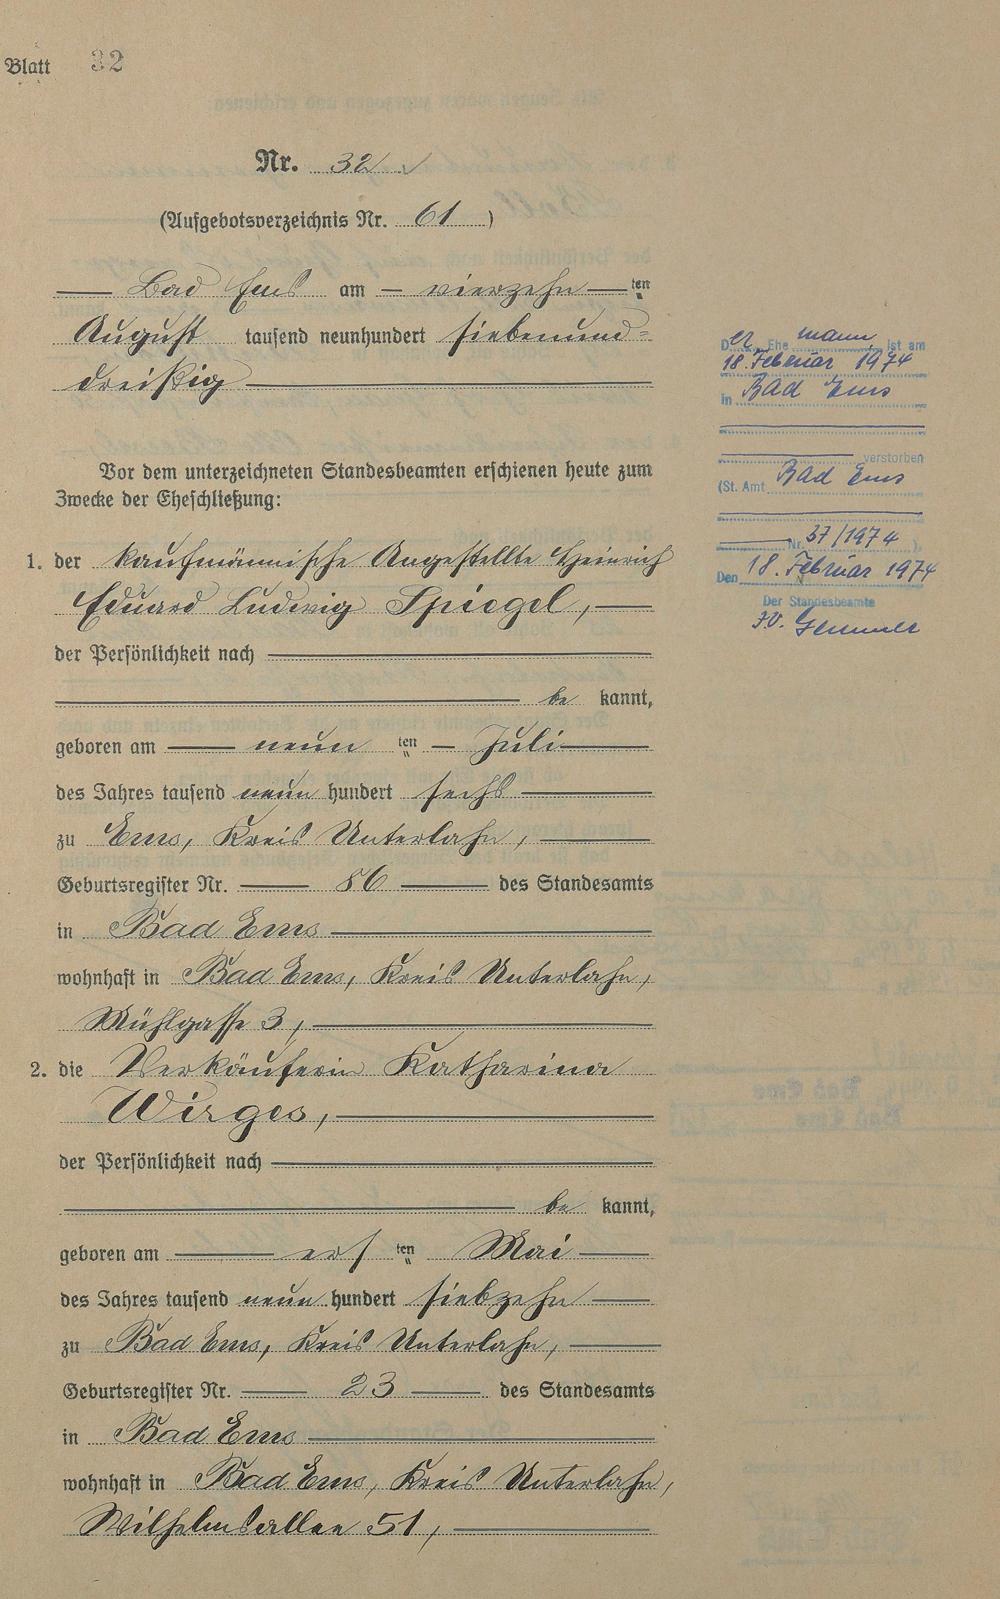 Blatt 32
Nr. 32
(Aufgebotsverzeichnis Nr. 61)
Bad Ems am vierzehnten
August tausend neunhundert siebenund=
dreißig
Vor dem unterzeichneten Standesbeamten erschienen heute zum
Zwecke der Eheschließung:
1. der kaufmännische Angestellte Heinrich
Eduard Ludwig Spiegel,
der Persönlichkeit nach
be kannt,
geboren am neun ten Juli
des Jahres tausend neun hundert sechs
zu Ems, Kreis Unterlahn,
Geburtsregister Nr. 86 des Standesamts
in Bad Ems
wohnhaft in Bad Ems, Kreis Unterlahn,
Mühlgasse 3,
2. die Verkäuferin Katharina
Wirges,
der Persönlichkeit nach
be kannt,
geboren am ers ten Mai
des Jahres tausend neun hundert siebzehn
zu Bad Ems, Kreis Unterlahn,
Geburtsregister Nr. 23 des Standesamts
in Bad Ems
wohnhaft in Bad Ems, Kreis Unterlahn,
Wilhelmsallee 51,
Der Ehe mann, ist am
18. Februar 1974
in Bad Ems
verstorben
(St. Amt Bad Ems
Nr. 37/1974 ).
Den 18. Februar 1974
Der Standesbeamte